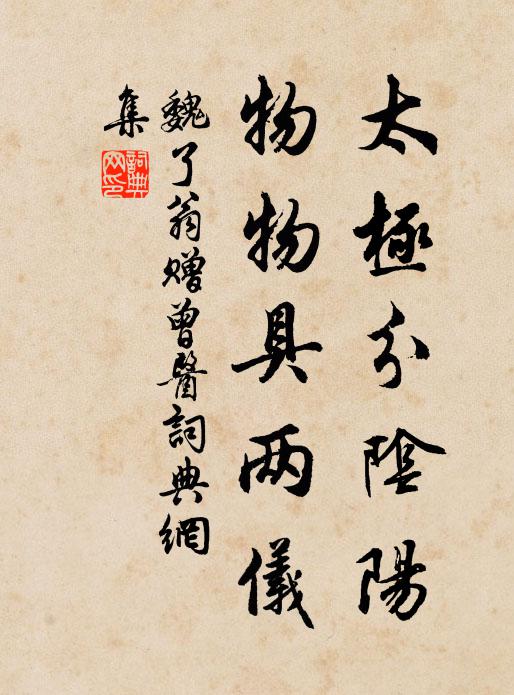 太極分陰陽
物物具两儀
魏了翁贈曾醫詞典網
集
詞典网印